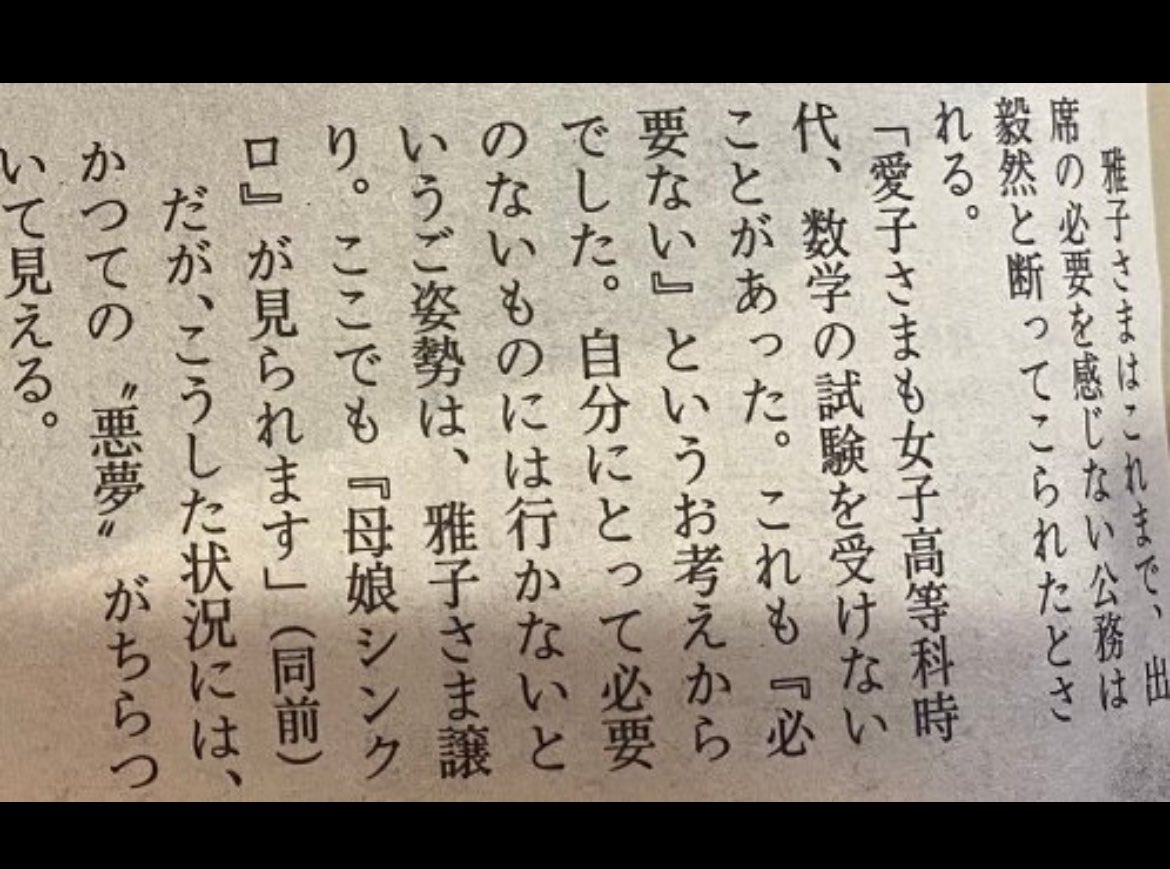 雅子さまはこれまで、出
席の必要を感じない公務は
毅然と断ってこられたとさ
れる。
「愛子さまも女子高等科時
代、数学の試験を受けない
ことがあった。これも『必
要ない』というお考えから
でした。自分にとって必要
のないものには行かないと
いうご姿勢は、雅子さま譲
り。ここでも『母娘シンク
ロ』が見られます」（同前）
だが、こうした状況には、
かつての〝悪夢〟がちらつ
いて見える。